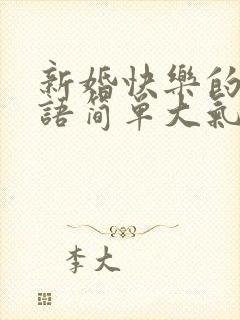 新婚快樂的
語简单大氣
李大